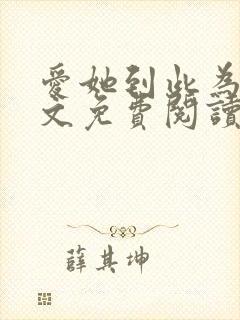 愛她到此為
文免費閱讀
薛其坤